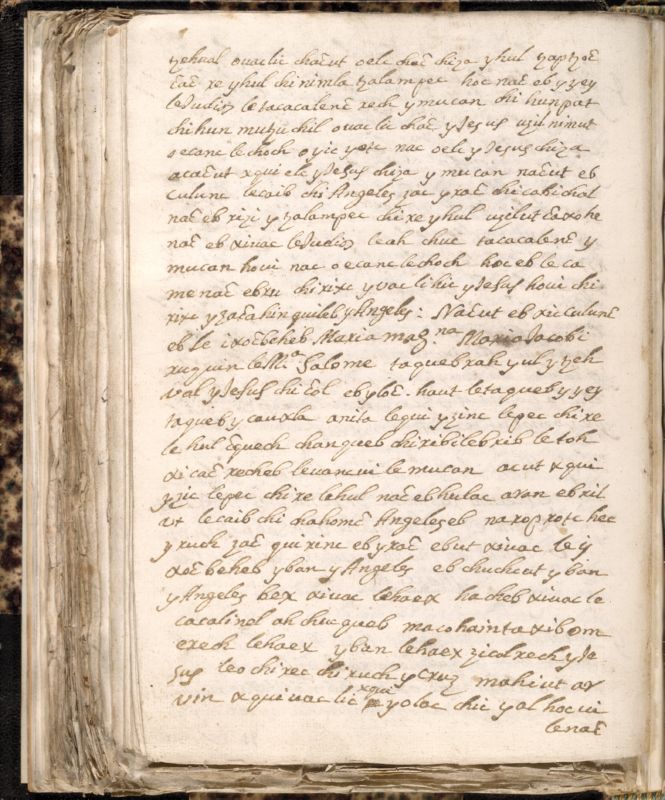 tzehual ouac lic chacut oelc choc chiza yhul tzaptzoc
cac re yhul chi nimla tzalampec hoc nac eb yyey
leJudio le tacacalenc rech y mucan chi hunpat
chi hun mutzuchil ouac lic chac yJesus uzil nimut
oecanc le choch oyic yotc nac oelc yJesus chiza
acacut x qui elc yJesus chiza y mucan nacut eb
culunc le caib chi Angeles zac y rac chi cabichal
nac eb rizi y tzalampec chi re yhul uzilut
nac eb xiuac leJudio leah chuc tacacalenc y
mucan houi nac oecanc le choch hoc eb le ca
me nac ebru chi rixc y uac li hic yJesus houi chi
rixc y Angeles: Nacut eb xic culunc
eb le ixocbeheb Maria mag.na Maria Jacobi
ruquin le Ma Salome taquebrah yul y tzeh
ual yJesus chi col eb yloc. haut le taqueb y yey
taqueb y cauxla anita le qui yzinc lepec chi re
le hul quech chanqueb chi ribileb rib le toh
xi cac recheb leuancui le mucan acut x qui
yzic lepec chi re lehul nac eb hulac aran eb ril
ut le caib chi chahomc Angeles eb
y ruch zac qui rinc eb y rac ebut xiuac le ix
xocbeheb yban y Angeles eb chuchcut yban
y Angeles bex xiuac lehaex hacheb xiuac le
cacalinel ah chucqueb macohainta xibom
erech lehaex yban lehaex zical rech yJe
sus leo chirec chi ruch y Cruz mahiut ar
uin x qui uac lic xqui yolac chic yal hoc ui
lenac